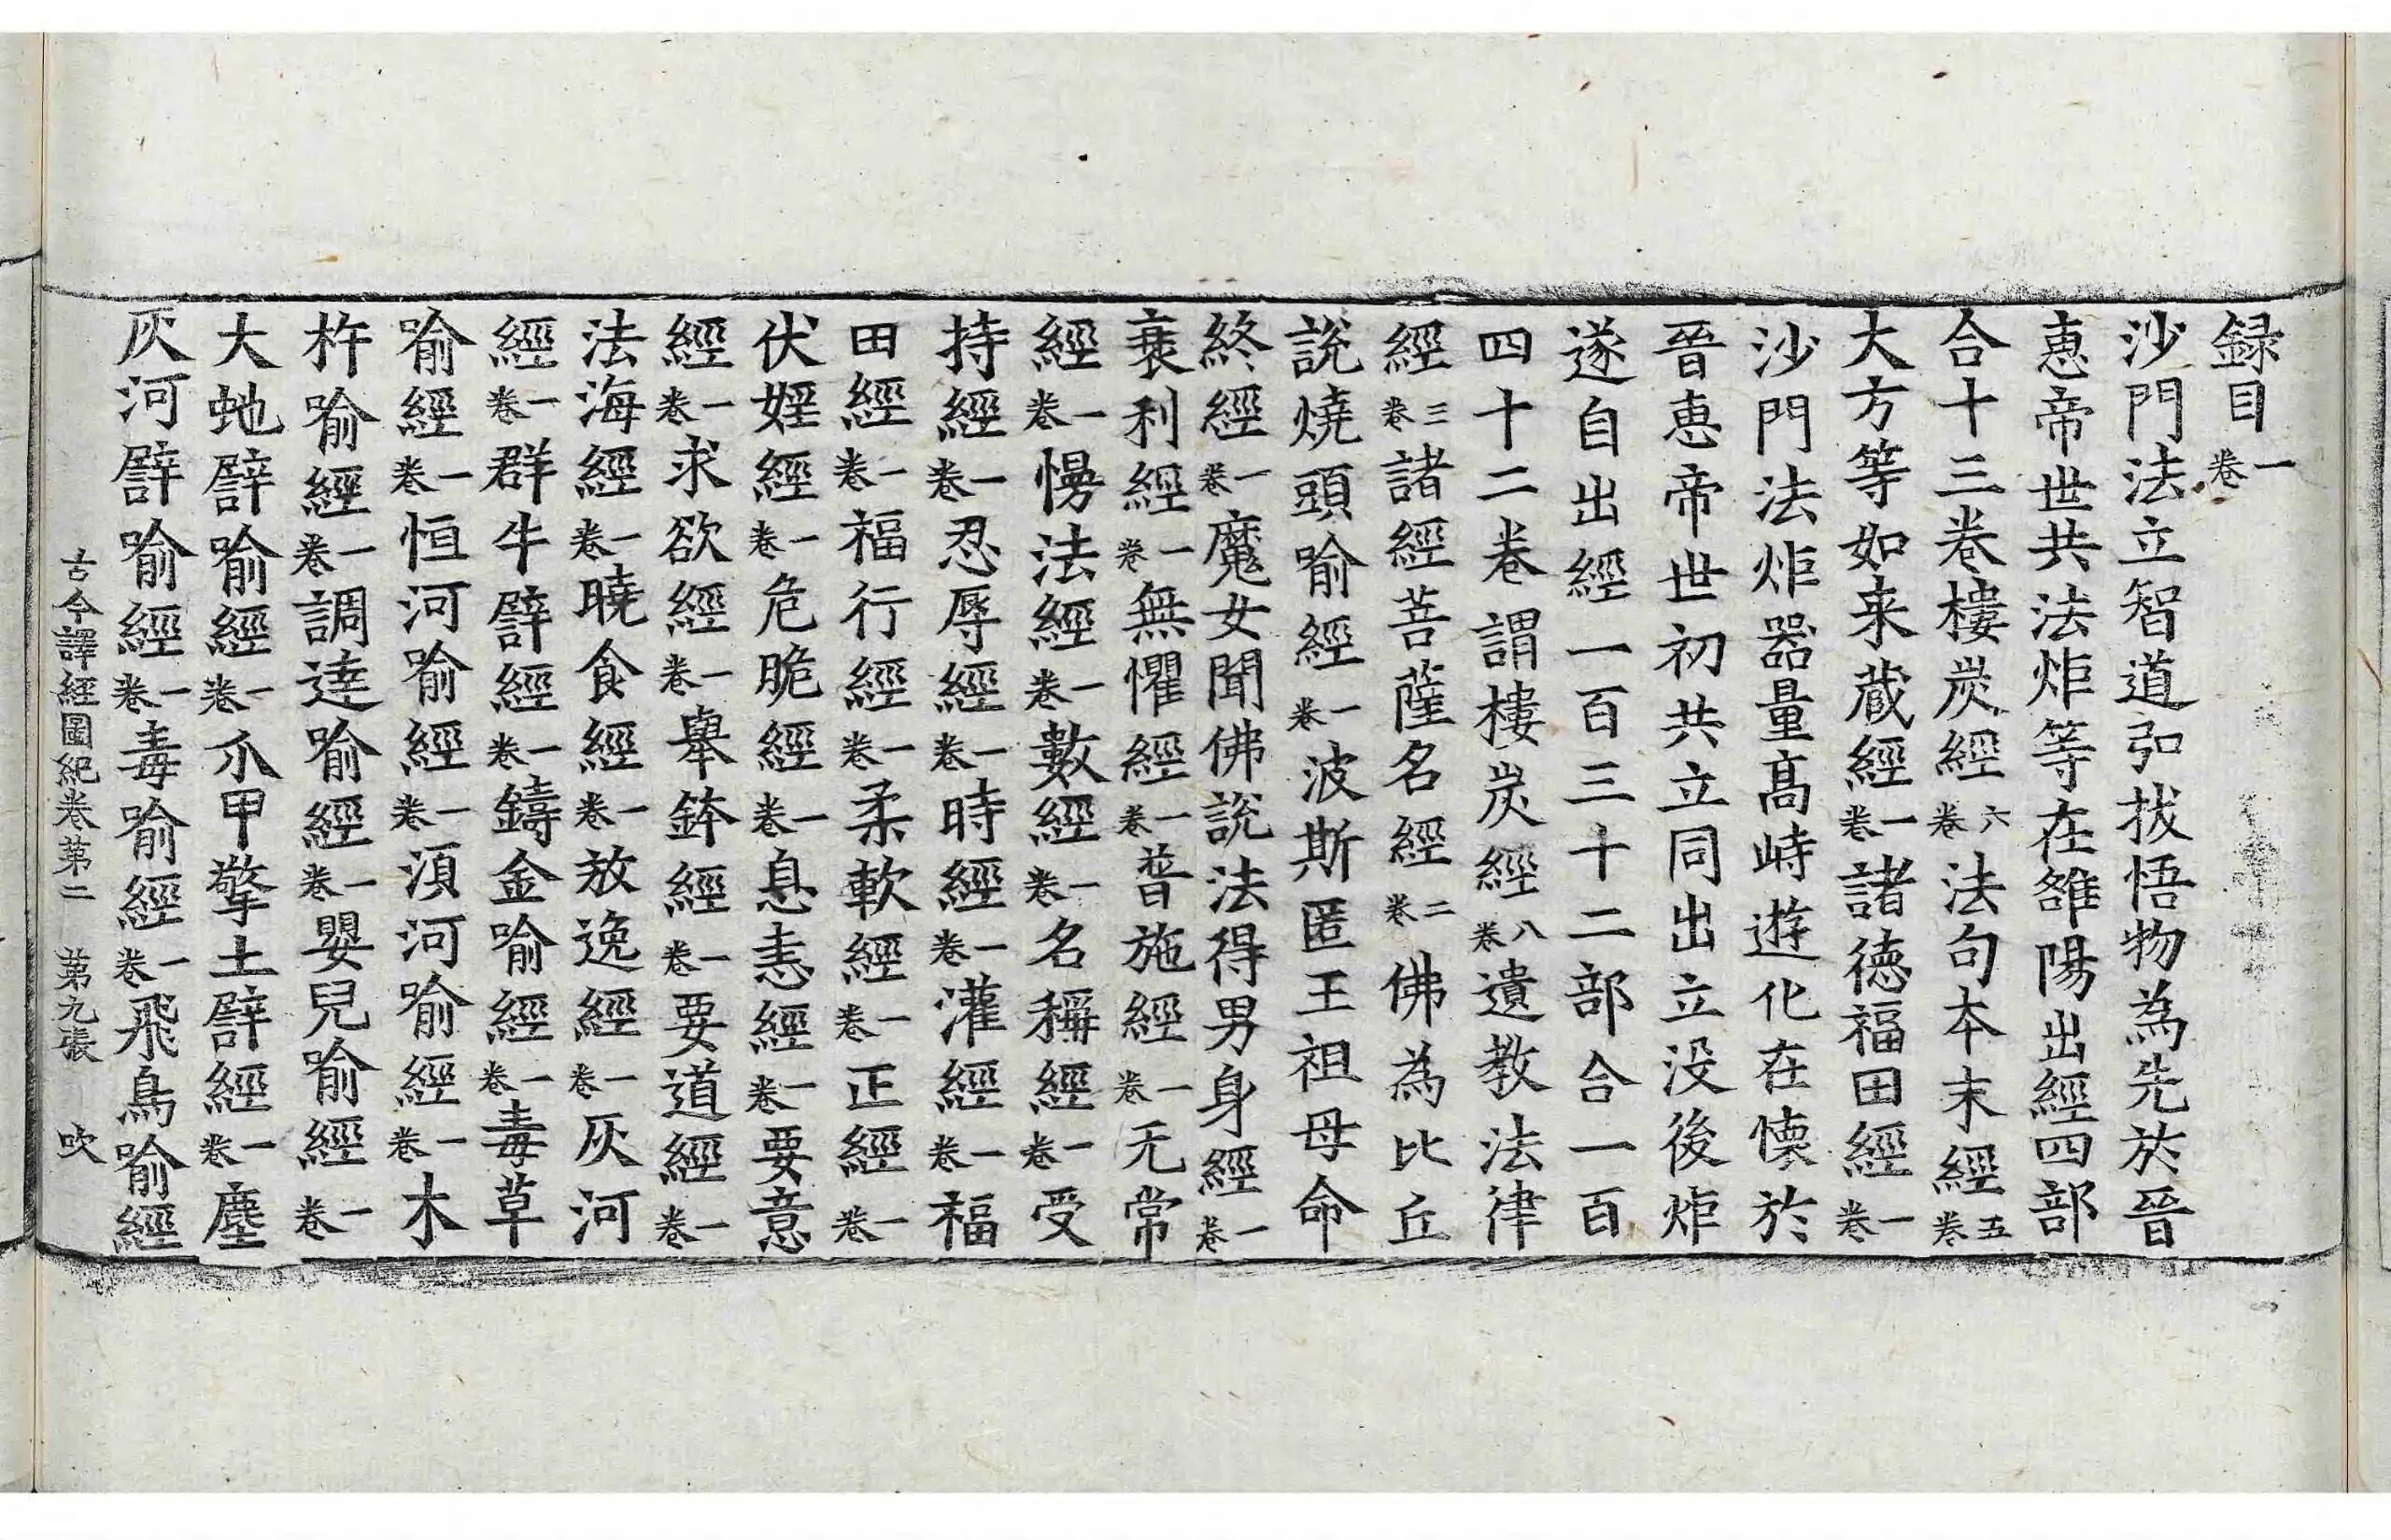 録目一卷
沙門法立智道弘拔悟物為先於晉
恵帝世共法炬等在雒陽出經四部
合十三卷樓炭經六卷法句本末經五卷
大方等如来蔵經一卷諸徳福田經一卷
沙門法炬器量髙峙遊化在懐於
晉恵帝世初共立同出立没後炬
遂自出經一百三十二部合一百
四十二卷謂樓炭經八卷遺教法律
經三卷諸經菩薩名經二卷佛為比丘
說燒頭喻經一卷波斯匿王祖母命
終經一卷魔女聞佛說法得男身經一卷
衰利經一卷無懼經一卷普施經一卷无常
經一卷慢法經一卷數經一卷名稱經一卷受
持經一卷忍辱經一卷時經一卷灌經一卷福
田經一卷福行經一卷柔軟經一卷正經一卷
伏婬經一卷危脆經一卷息恚經一卷要意
經一卷求欲經一卷舉鉢經一卷要道經一卷
法海經一卷曉食經一卷放逸經一卷灰河
經一卷群牛譬經一卷鑄金喻經一卷毒草
喻經一卷恒河喻經一卷湏河喻經一卷木
杵喻經一卷調達喻經一卷嬰兒喻經一卷
大虵譬喻經一卷爪甲擎土譬經一卷塵
灰河譬喻經一卷毒喻經一卷飛鳥喻經
古今譯經圖紀卷第二　第九張　吹